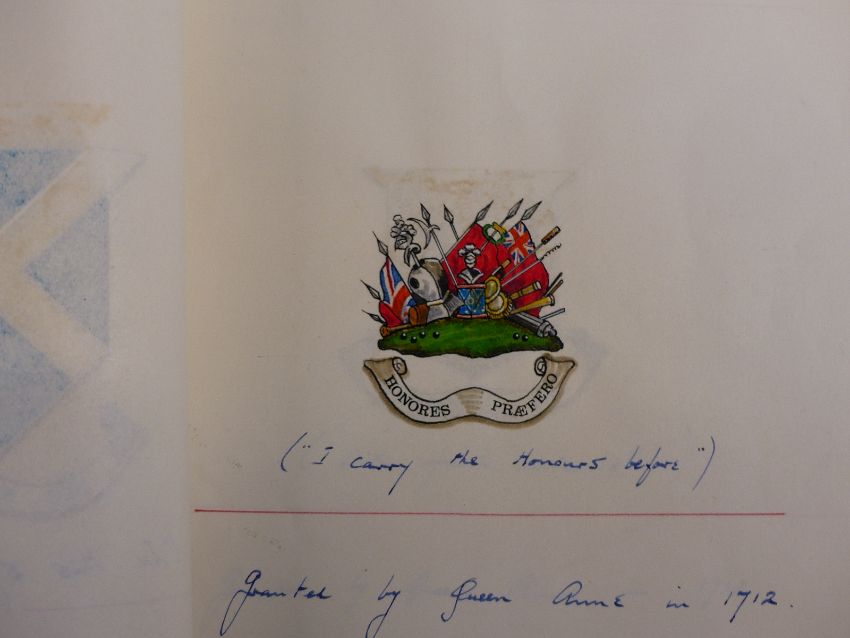 HONORES PRÆFERO
("I carry the Honours before")
Granted by Queen Anne in 1712.